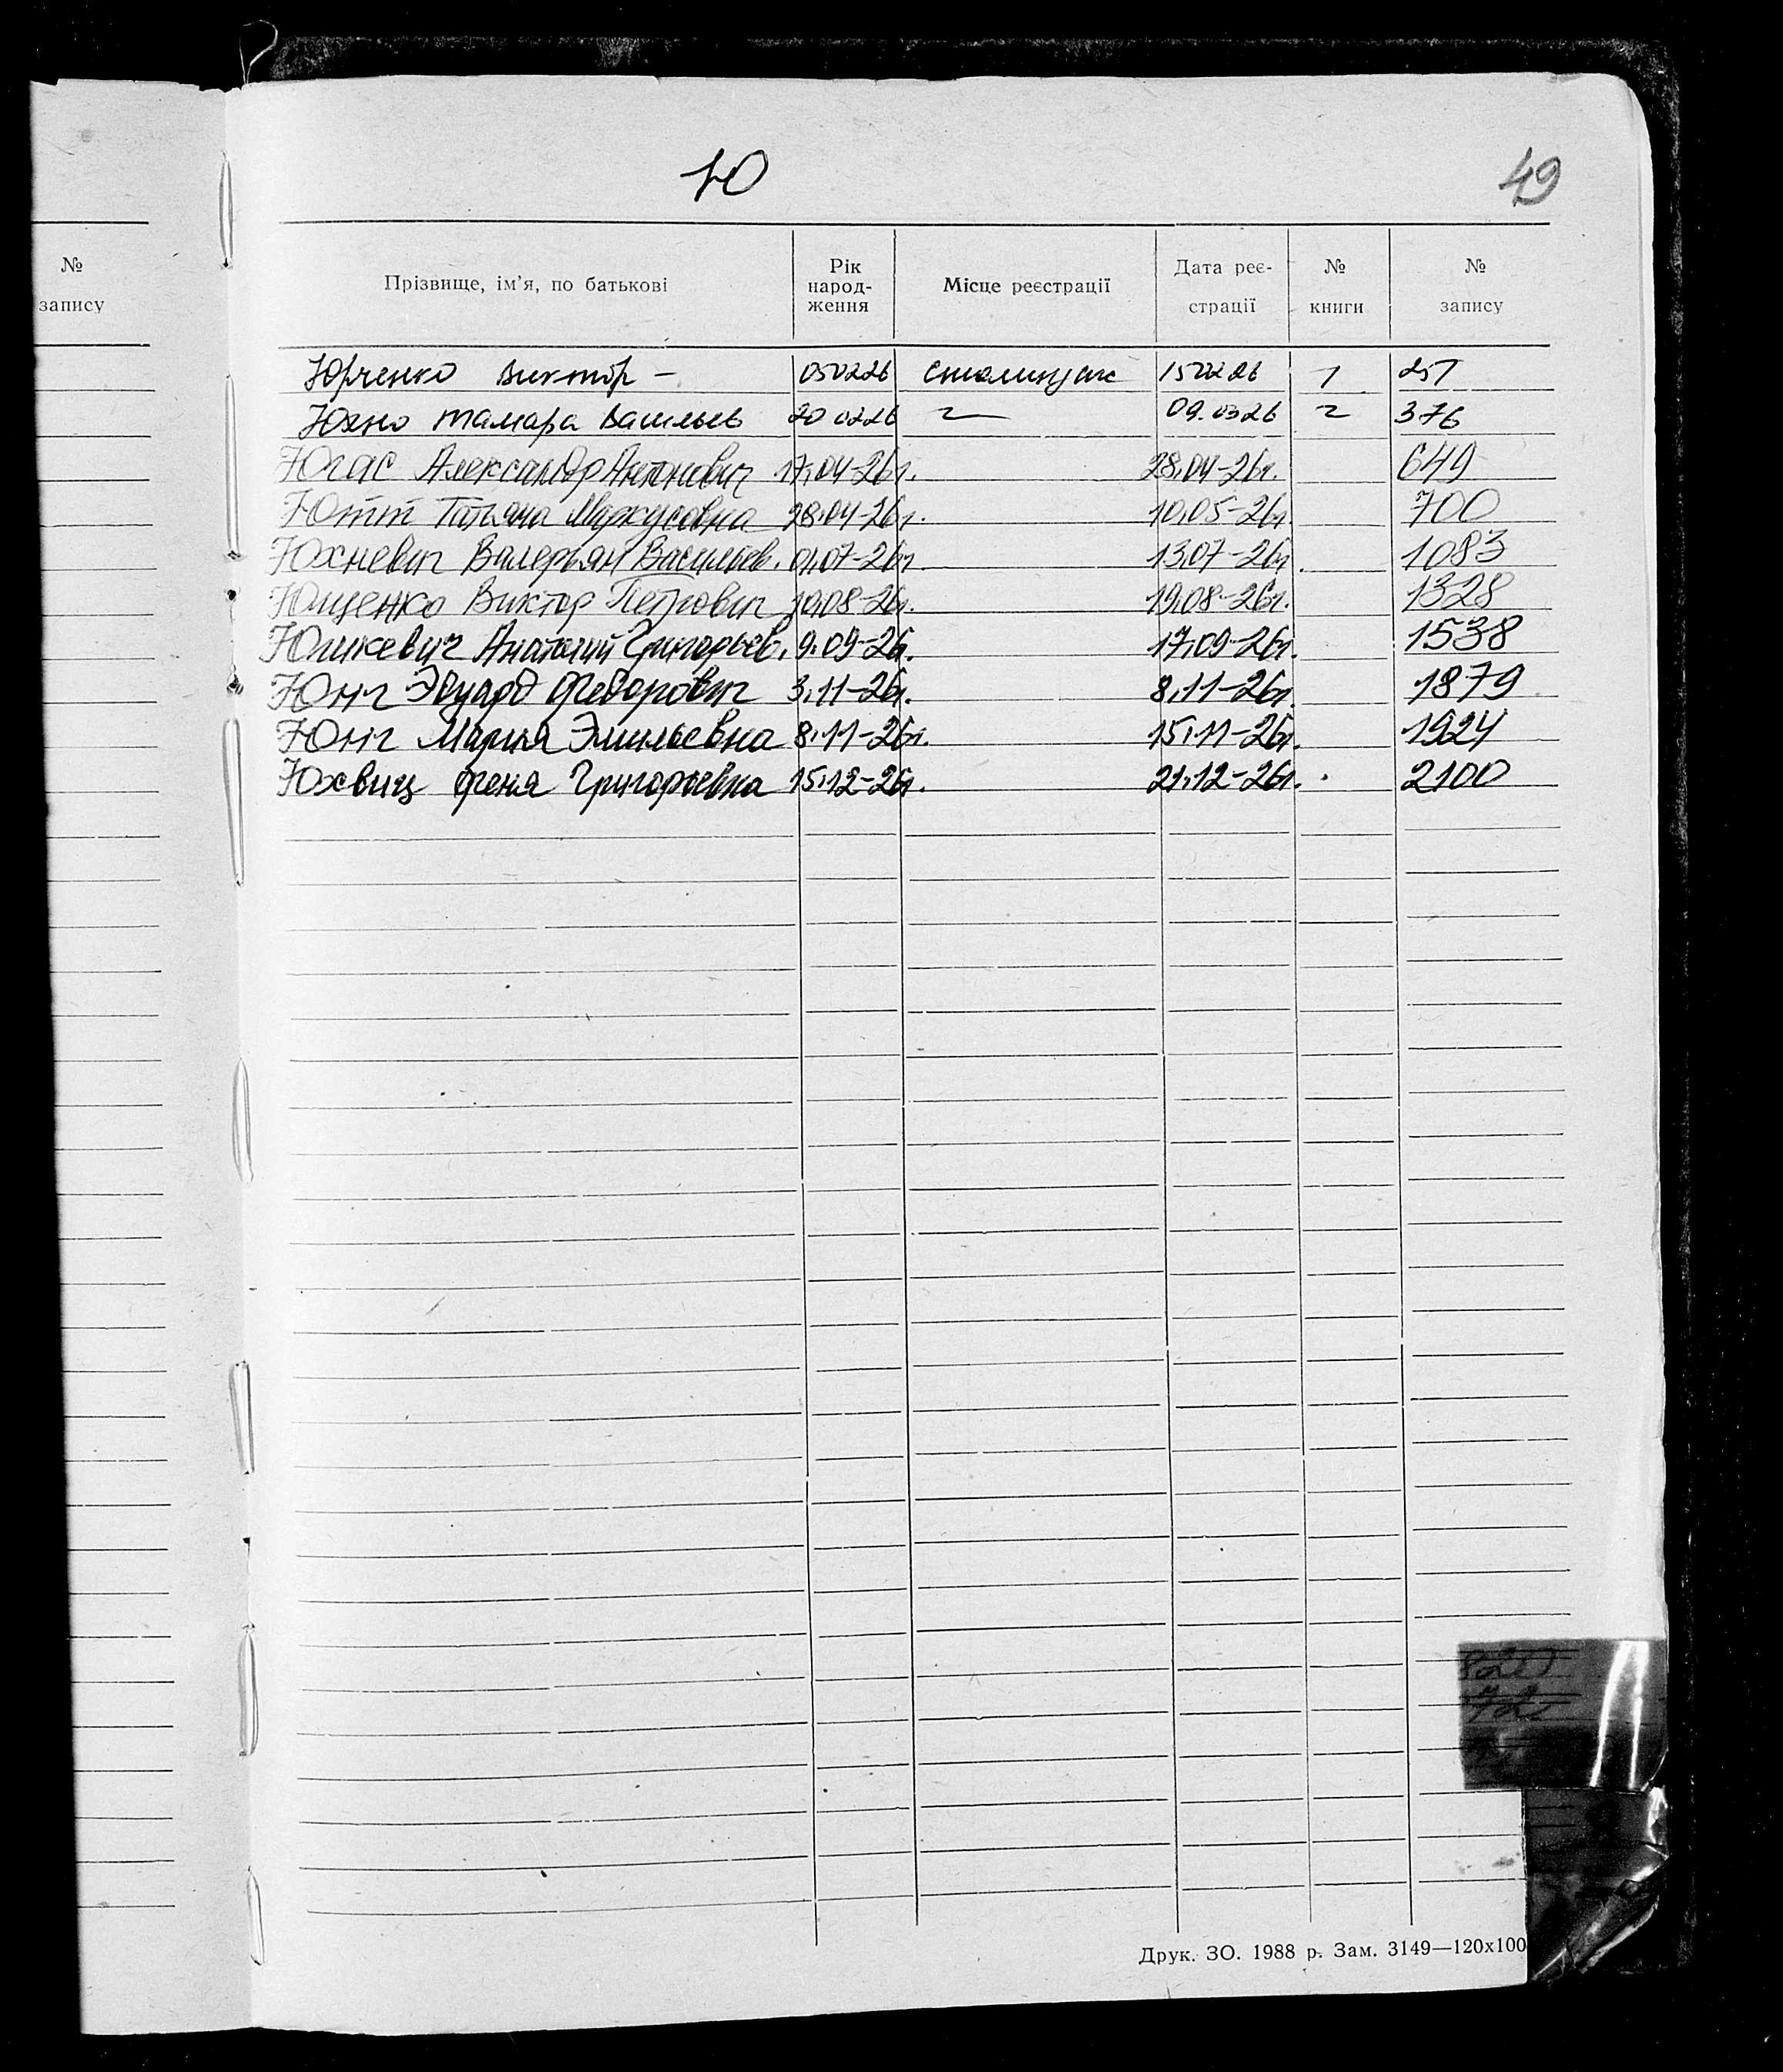 Ю
49
№ запису
Прізвище, ім'я, по батькові Рік народ-ження Місце реєстрації Дата реє-страції № книги № запису
Юрченко Виктор – 050226 150226 1 251
Юхно Тамара Васильев 20 0226 09.0326 2 376
Югас Александр Антонович 17.04-26г. 28.04-26г. 649
Ютт Татьяна Маркусовна 28.04-26г. 10.05-26г. 700
Юхневич Валерьян Васильев. 01.07-26г 13.07-26г. 1083
Ющенко Виктор Петрович 10.08-26г. 19.08-26г. 1328
Юшкевич Анатолий Григорьев. 9.09-26г. 17.09-26г. 1538
Юнг Эдуард Федорович 3.11-26г. 8.11-26г. 1879
Юнг Мария Эмильевна 8.11-26г. 15.11-26г. 1924
Юхвиц Феня Григорьевна 15.12-26г. 21.12-26г. 2100
Друк. ЗО. 1988 р. Зам. 3149—120х100